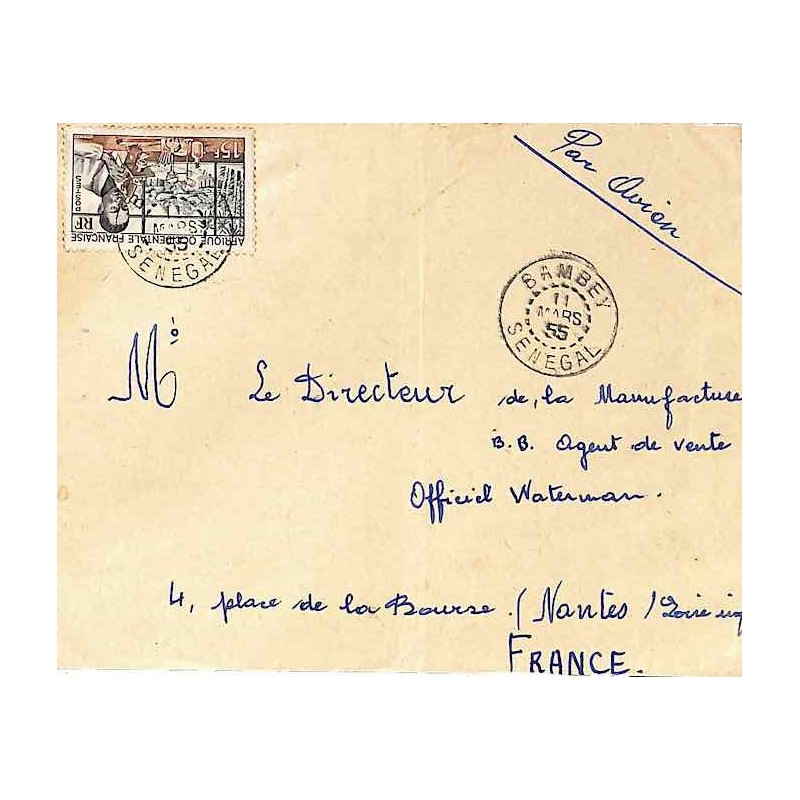 15F
POSTES
RF
AFRIQUE OCCIDENTALE FRANÇAISE
11
MARS
55
SENEGAL
Par Avion
BAMBEY
11
MARS
55
SENEGAL
Mº Le Directeur de la Manufacture
B.B. Agent de vente
Officiel Waterman.
4, place de la Bourse. (Nantes) Loire
FRANCE.